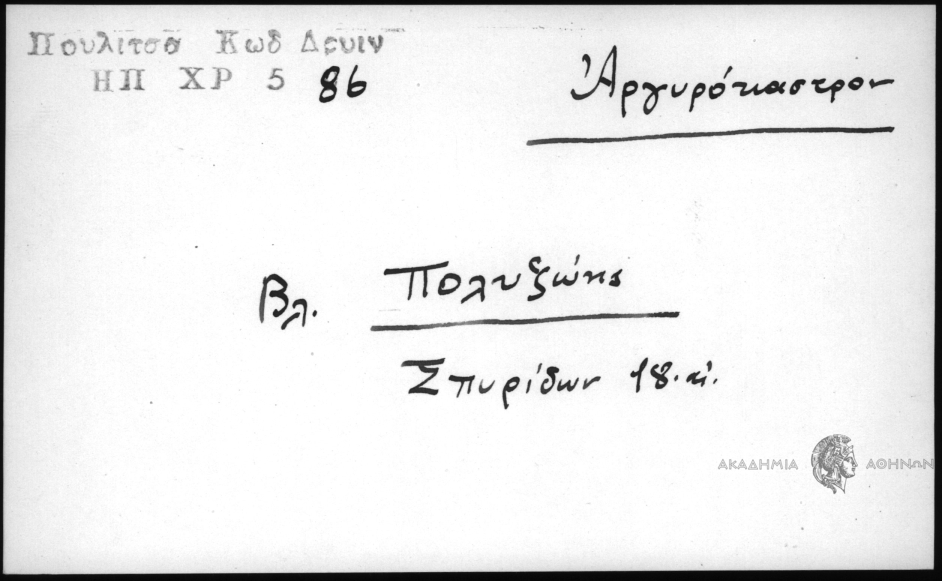 Πουλιτσα Κωδ Δρυιν
ΗΠ ΧΡ 5 86
Ἀργυρόκαστρον
Βλ. Πολυζώης
Σπυρίδων 18. αἰ.
ΑΚΑΔΗΜΙΑ ΑΘΗΝΩΝ